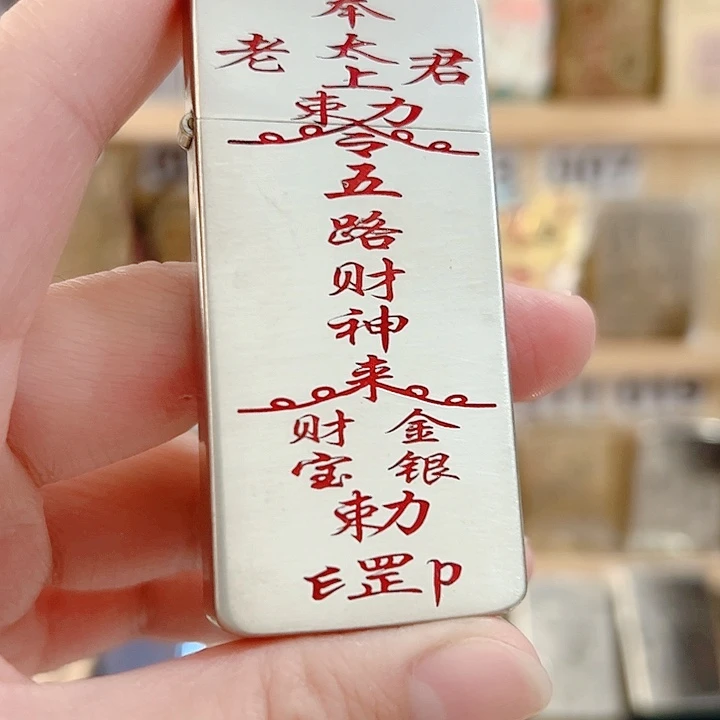 奉太上
老君
勅令五路财神来
财宝
金银
勅
罡